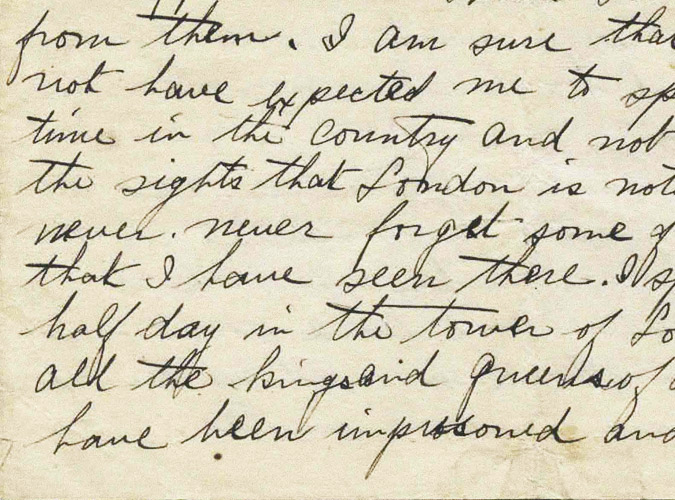 from them. I am sure that
not have expected me to sp
time in the country and not
the sights that London is not
never. never forget some of
that I have seen there. I sp
half day in the tower of Lo
all the kings and queens of
have been imprisoned and